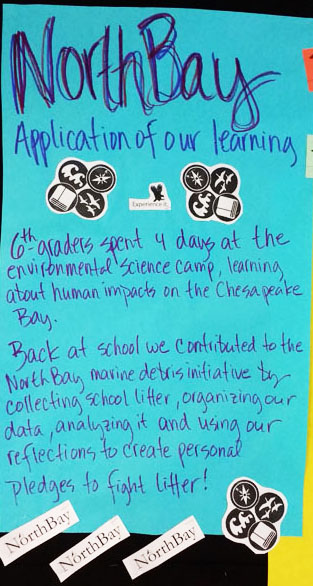 NorthBay
Application of our learning
Experience it.
6th graders spent 4 days at the
environmental science camp, learning
about human impacts on the Chesapeake
Bay.
Back at school we contributed to the
NorthBay marine debris initiative by
collecting school litter, organizing our
data, analyzing it and using our
reflections to create personal
pledges to fight litter!
NorthBay
NorthBay
NorthBay